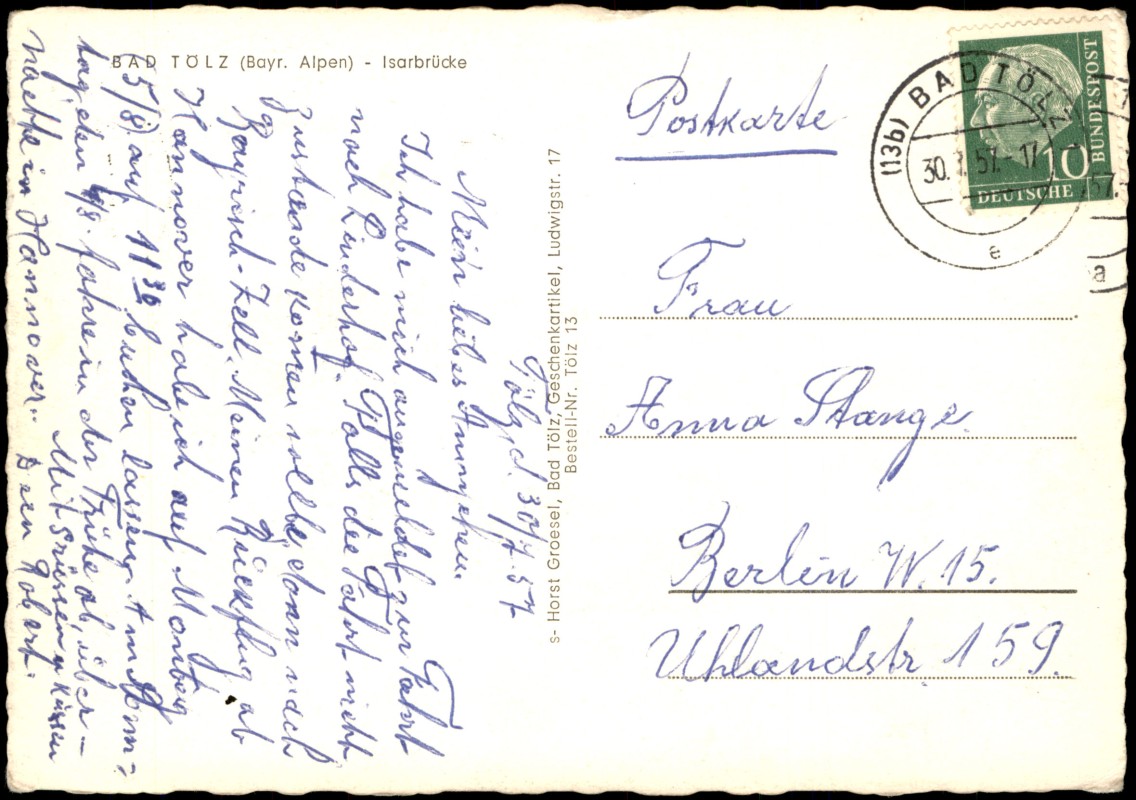 BAD TÖLZ (Bayr. Alpen) - Isarbrücke
Tölz, d. 30/7.57
Mein liebes Annychen.
Ich habe mich angemeldet zur Fahrt
nach Linderhof. Falls die Fahrt nicht
zustande kommen sollte, dann nach
Bayrisch-Zell. Meinen Rückflug ab
Hannover habe ich auf Montag
(5/8) auf 11 30 buchen lassen. Am
tag den 4/8. fahre in der Frühe ab, über-
nachte in Hannover.
Mit Grüssen u Küssen
Dein Robert.
s- Horst Groesel, Bad Tölz, Geschenkartikel, Ludwigstr. 17
Bestell-Nr. Tölz 13
Postkarte
(13b) BAD TÖLZ
30.7.57-17
e
10
DEUTSCHE
BUNDESPOST
57.
a
Frau
Anna Stange.
Berlin W. 15.
Uhlandstr. 159.